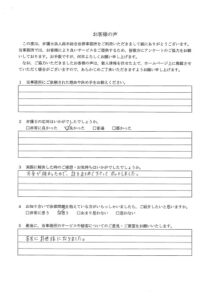 お客様の声
この度は、弁護士法人鈴木総合法律事務所をご利用いただきまして誠にありがとうございます。
当事務所では、お客様により良いサービスをご提供するため、皆様方にアンケートのご協力をお願
いしております。お手数ですが、何卒よろしくお願い申し上げます。
なお、ご協力いただきましたお客様の声は、個人情報を伏せた上で、ホームページ上に掲載させ
ていただく場合がございますので、あらかじめご了承いただきますようお願い申し上げます。
1 当事務所にご依頼された理由や決め手をお教えください。
2 弁護士の応対はいかがでしたでしょうか。
□非常に良かった □良かった □普通 □悪かった
3 実際に解決した時のご感想・お気持ちはいかがでしたでしょうか。
4 お知り合いで法律問題を抱えている方がいらっしゃいましたら、ご紹介したいと思いますか。
□非常に思う □思う □あまり思わない □思わない
5 最後に、当事務所のサービスや接客についてのご意見・ご要望をお願いいたします。